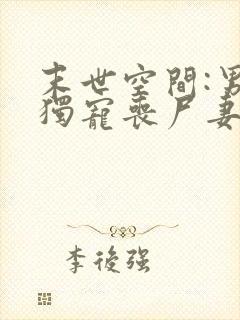 末世空間:男
獨寵喪尸妻
李後強